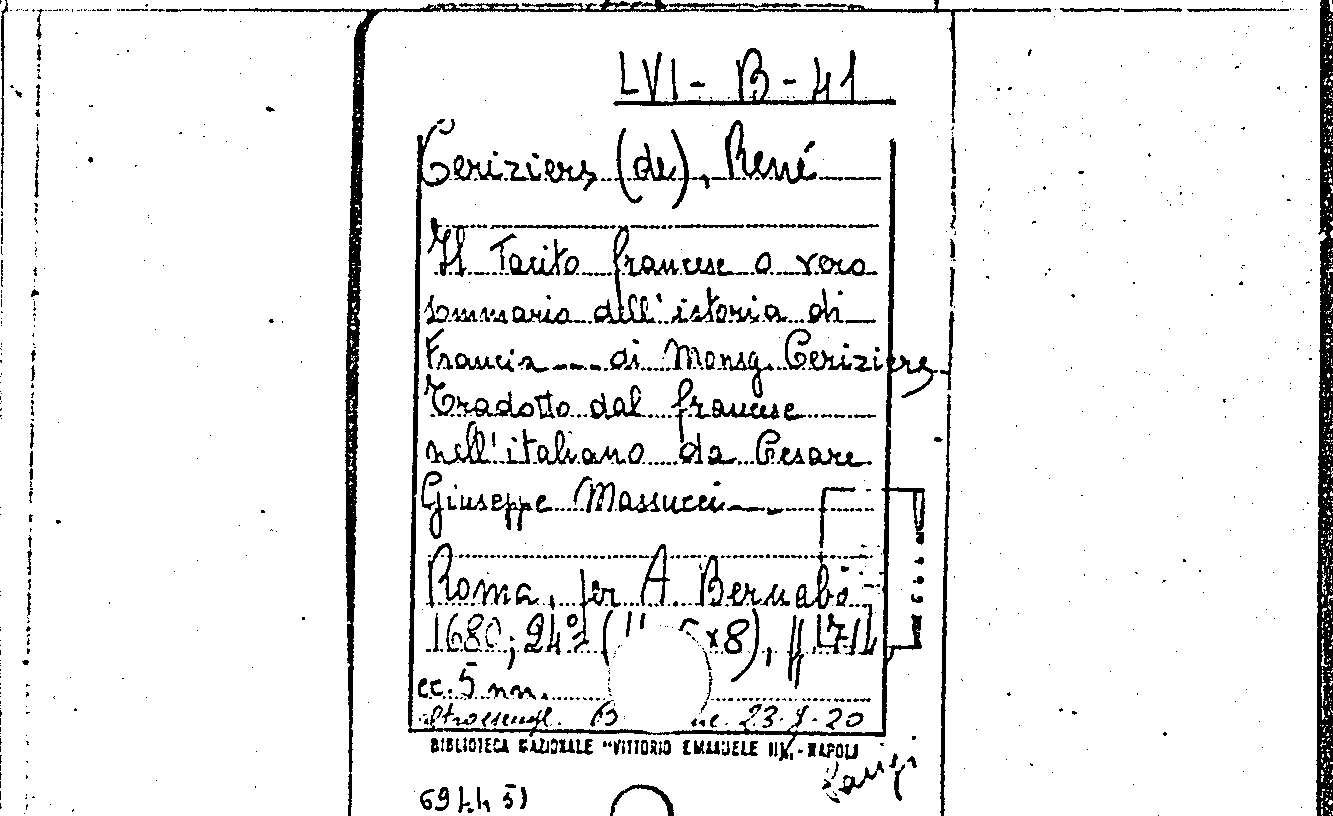 LVI - B - 41
Ceriziers (de), René
Il Tacito francese o vero
sommario dell'istoria di
Francia ... di Monsg. Ceriziers,
Tradotto dal francese
nell'italiano da Cesare
Giuseppe Massucci
Roma, per A. Bernabò
1680; 24º ( x8), pp 171
cc. 5 nn.
altro esempl. B 23. 20
BIBLIOTECA NAZIONALE "VITTORIO EMANUELE III" - NAPOLI